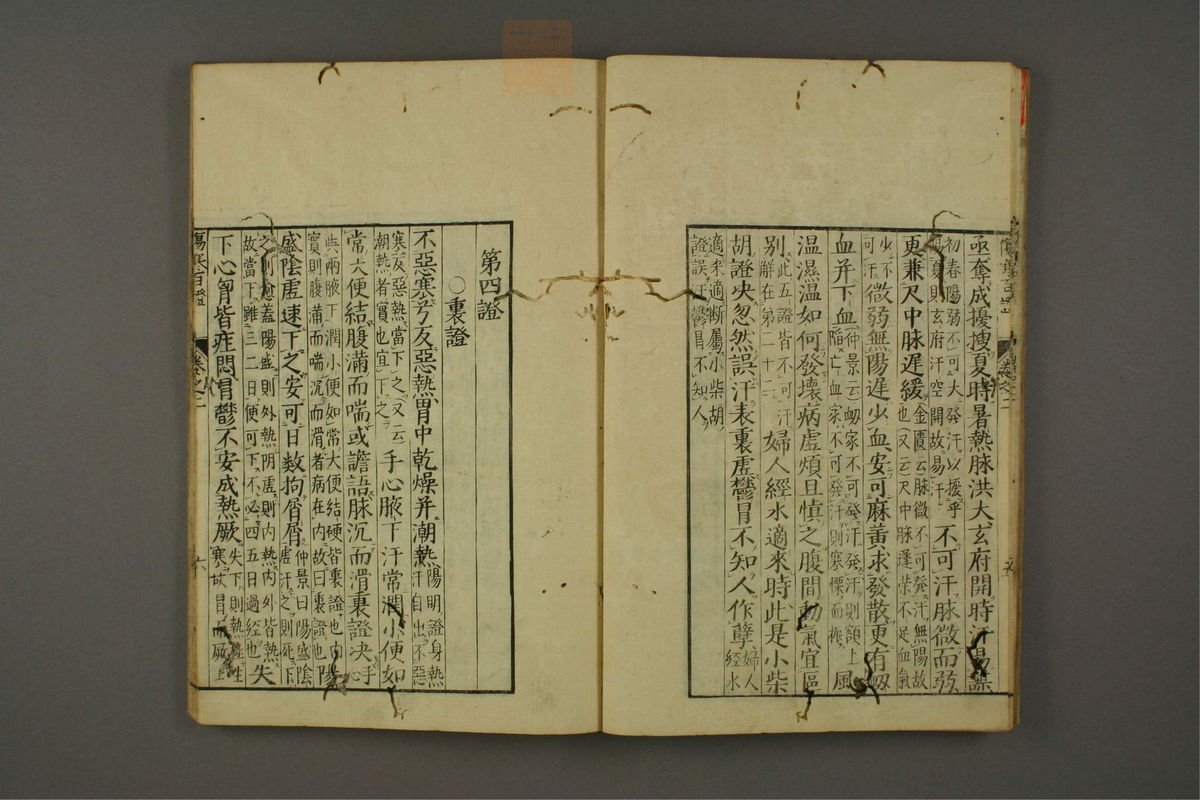 亟奪成擾搜夏時暑熱脉洪大玄府開時汗易
初春陽弱不可大發汗以擾乎
陽夏則玄府汗空開故易汗
不可汗脉微而弱
更兼尺中脉遲緩
金匱云脉微不可發汗無陽故
也又云尺中脉遲榮不足血氣
少不
可汗
微弱無陽遲少血安可麻黄求發散更有衂
血并下血
仲景云衂家不可發汗發汗則額上
陷亡血家不可發汗則寒慄而振
風
温濕温如何發壞病虚煩且慎之腹間動氣宜區
別
此五證皆不可汗
解在第二十二
婦人經水適來時此是小柴
胡證决忽然誤汗表裏虚鬱冒不知人作孽
婦人
經水
適來適断屬小柴胡
證誤汗鬱冒不知人
第四證
○裏證
不惡寒兮反惡熱胃中乾燥并潮熱
陽明證身熱
汗自出不惡
寒反惡熱當下之又云
潮熱者實也宜下之
手心腋下汗常潤小便如
常大便結腹滿而喘或譫語脉沉而滑裏證决
手心
并兩腋下潤小便如常大便結硬皆裏證也内
實則腹滿而喘沉而滑者病在内故曰裏證也
陽
盛陰虚速下之安可日數拘屑屑
仲景曰陽盛陰
虚汗之則死下
之則愈蓋陽盛則外熱陰虚則内熱内外皆熱
故當下雖三二日便可下不必四五日過經也
失
下心胷皆疰悶冒鬱不安成熱厥
失下則熱
寒故冒而厥上
傷寒百證
卷之二
六